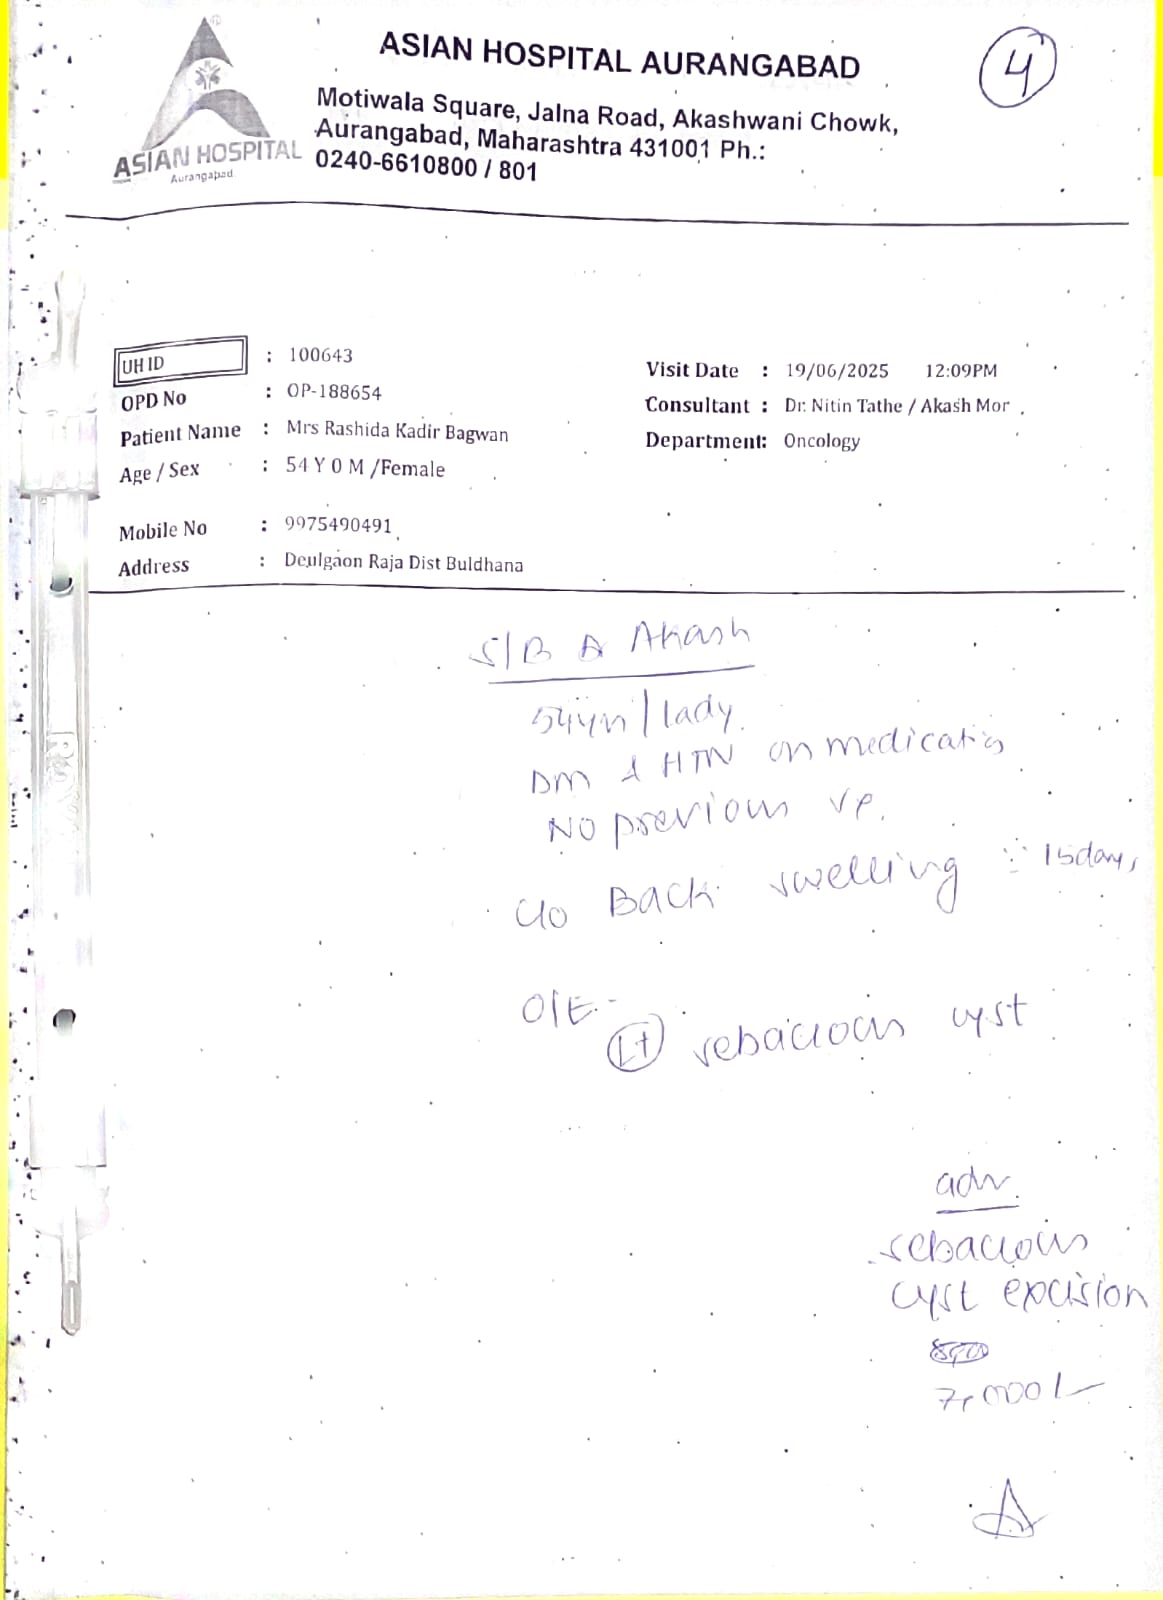 ASIAN HOSPITAL AURANGABAD
4
Motiwala Square, Jalna Road, Akashwani Chowk,
Aurangabad, Maharashtra 431001 Ph.:
0240-6610800 / 801
ASIAN HOSPITAL
Aurangabad
UH ID : 100643
OPD No : OP-188654
Patient Name : Mrs Rashida Kadir Bagwan
Age / Sex : 54 Y 0 M /Female
Mobile No : 9975490491
Address : Deulgaon Raja Dist Buldhana
Visit Date : 19/06/2025 12:09PM
Consultant : Dr. Nitin Tathe / Akash Mor
Department: Oncology
S/B Akash
54yr/lady
DM & HTN on medicatis
No previous
c/o Back swelling 15days
O/E -
Lt sebacious cyst
adv.
sebacious
cyst excision
7,000/-